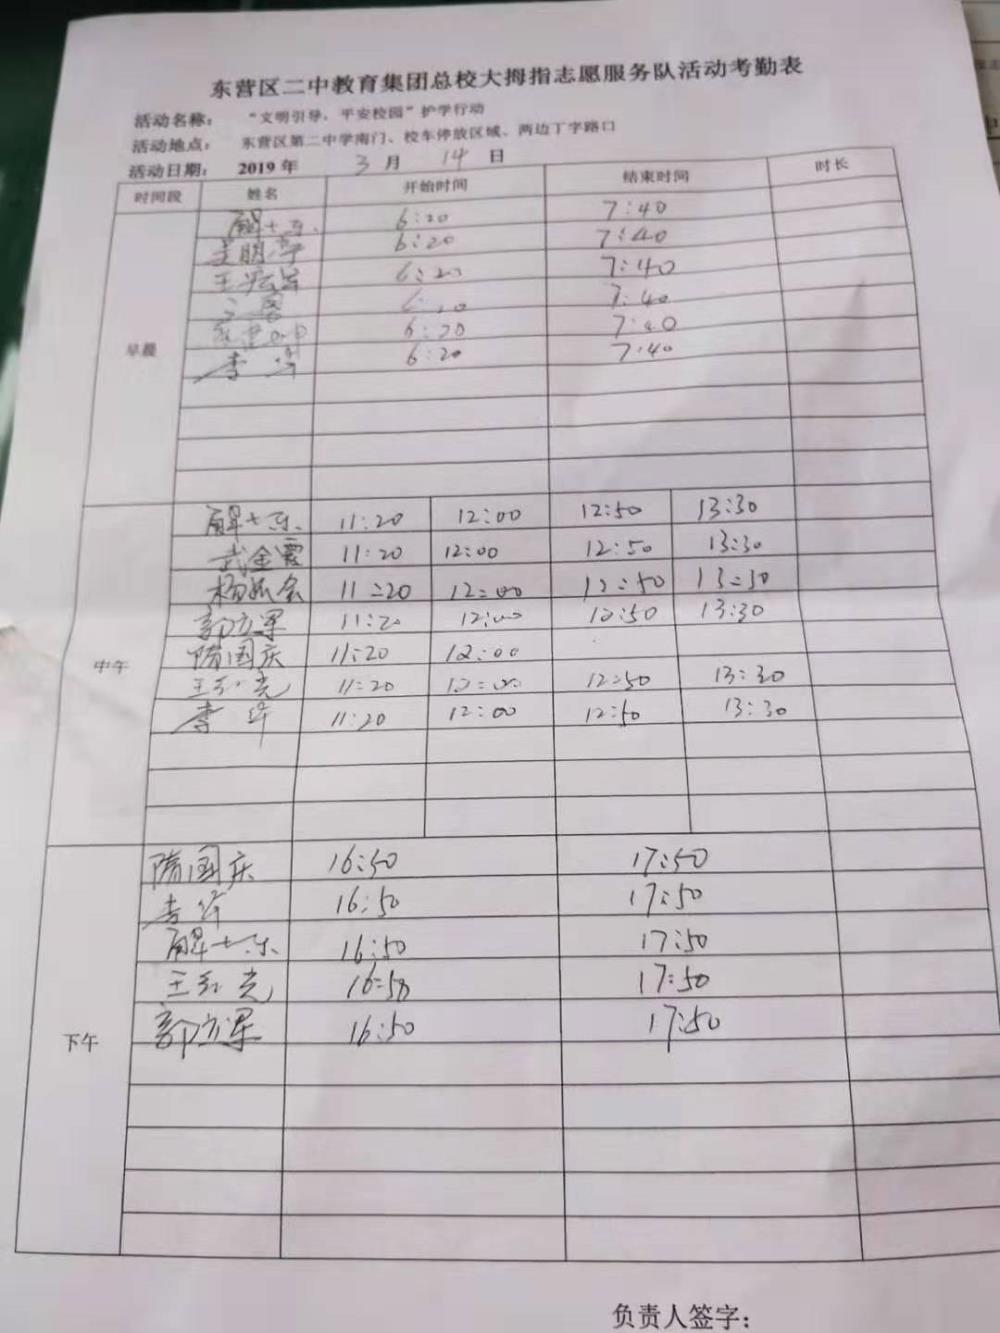 东营区二中教育集团总校大拇指志愿服务队活动考勤表
活动名称： “文明引导，平安校园”护学行动
活动地点： 东营区第二中学南门、校车停放区域、两边丁字路口
活动日期： 2019 年 3 月 14 日
时间段 姓名 开始时间 结束时间 时长
6:20 7:40
6:20 7:40
6:20 7:40
7:40
6:20 7:40
早晨
李 6:20 7:40
11:20 12:00 12:50 13:30
武金霞 11:20 12:00 12:50 13:30
11:20 12:00 12:50 13:30
郭立军 11:20 12:00 12:50 13:30
中午
隋国庆 11:20 12:00
王红光 11:20 12:00 12:50 13:30
李 11:20 12:00 12:50 13:30
隋国庆 16:50 17:50
李 16:50 17:50
16:50 17:50
王红光 16:50 17:50
郭立军 16:50 17:50
下午
负责人签字：